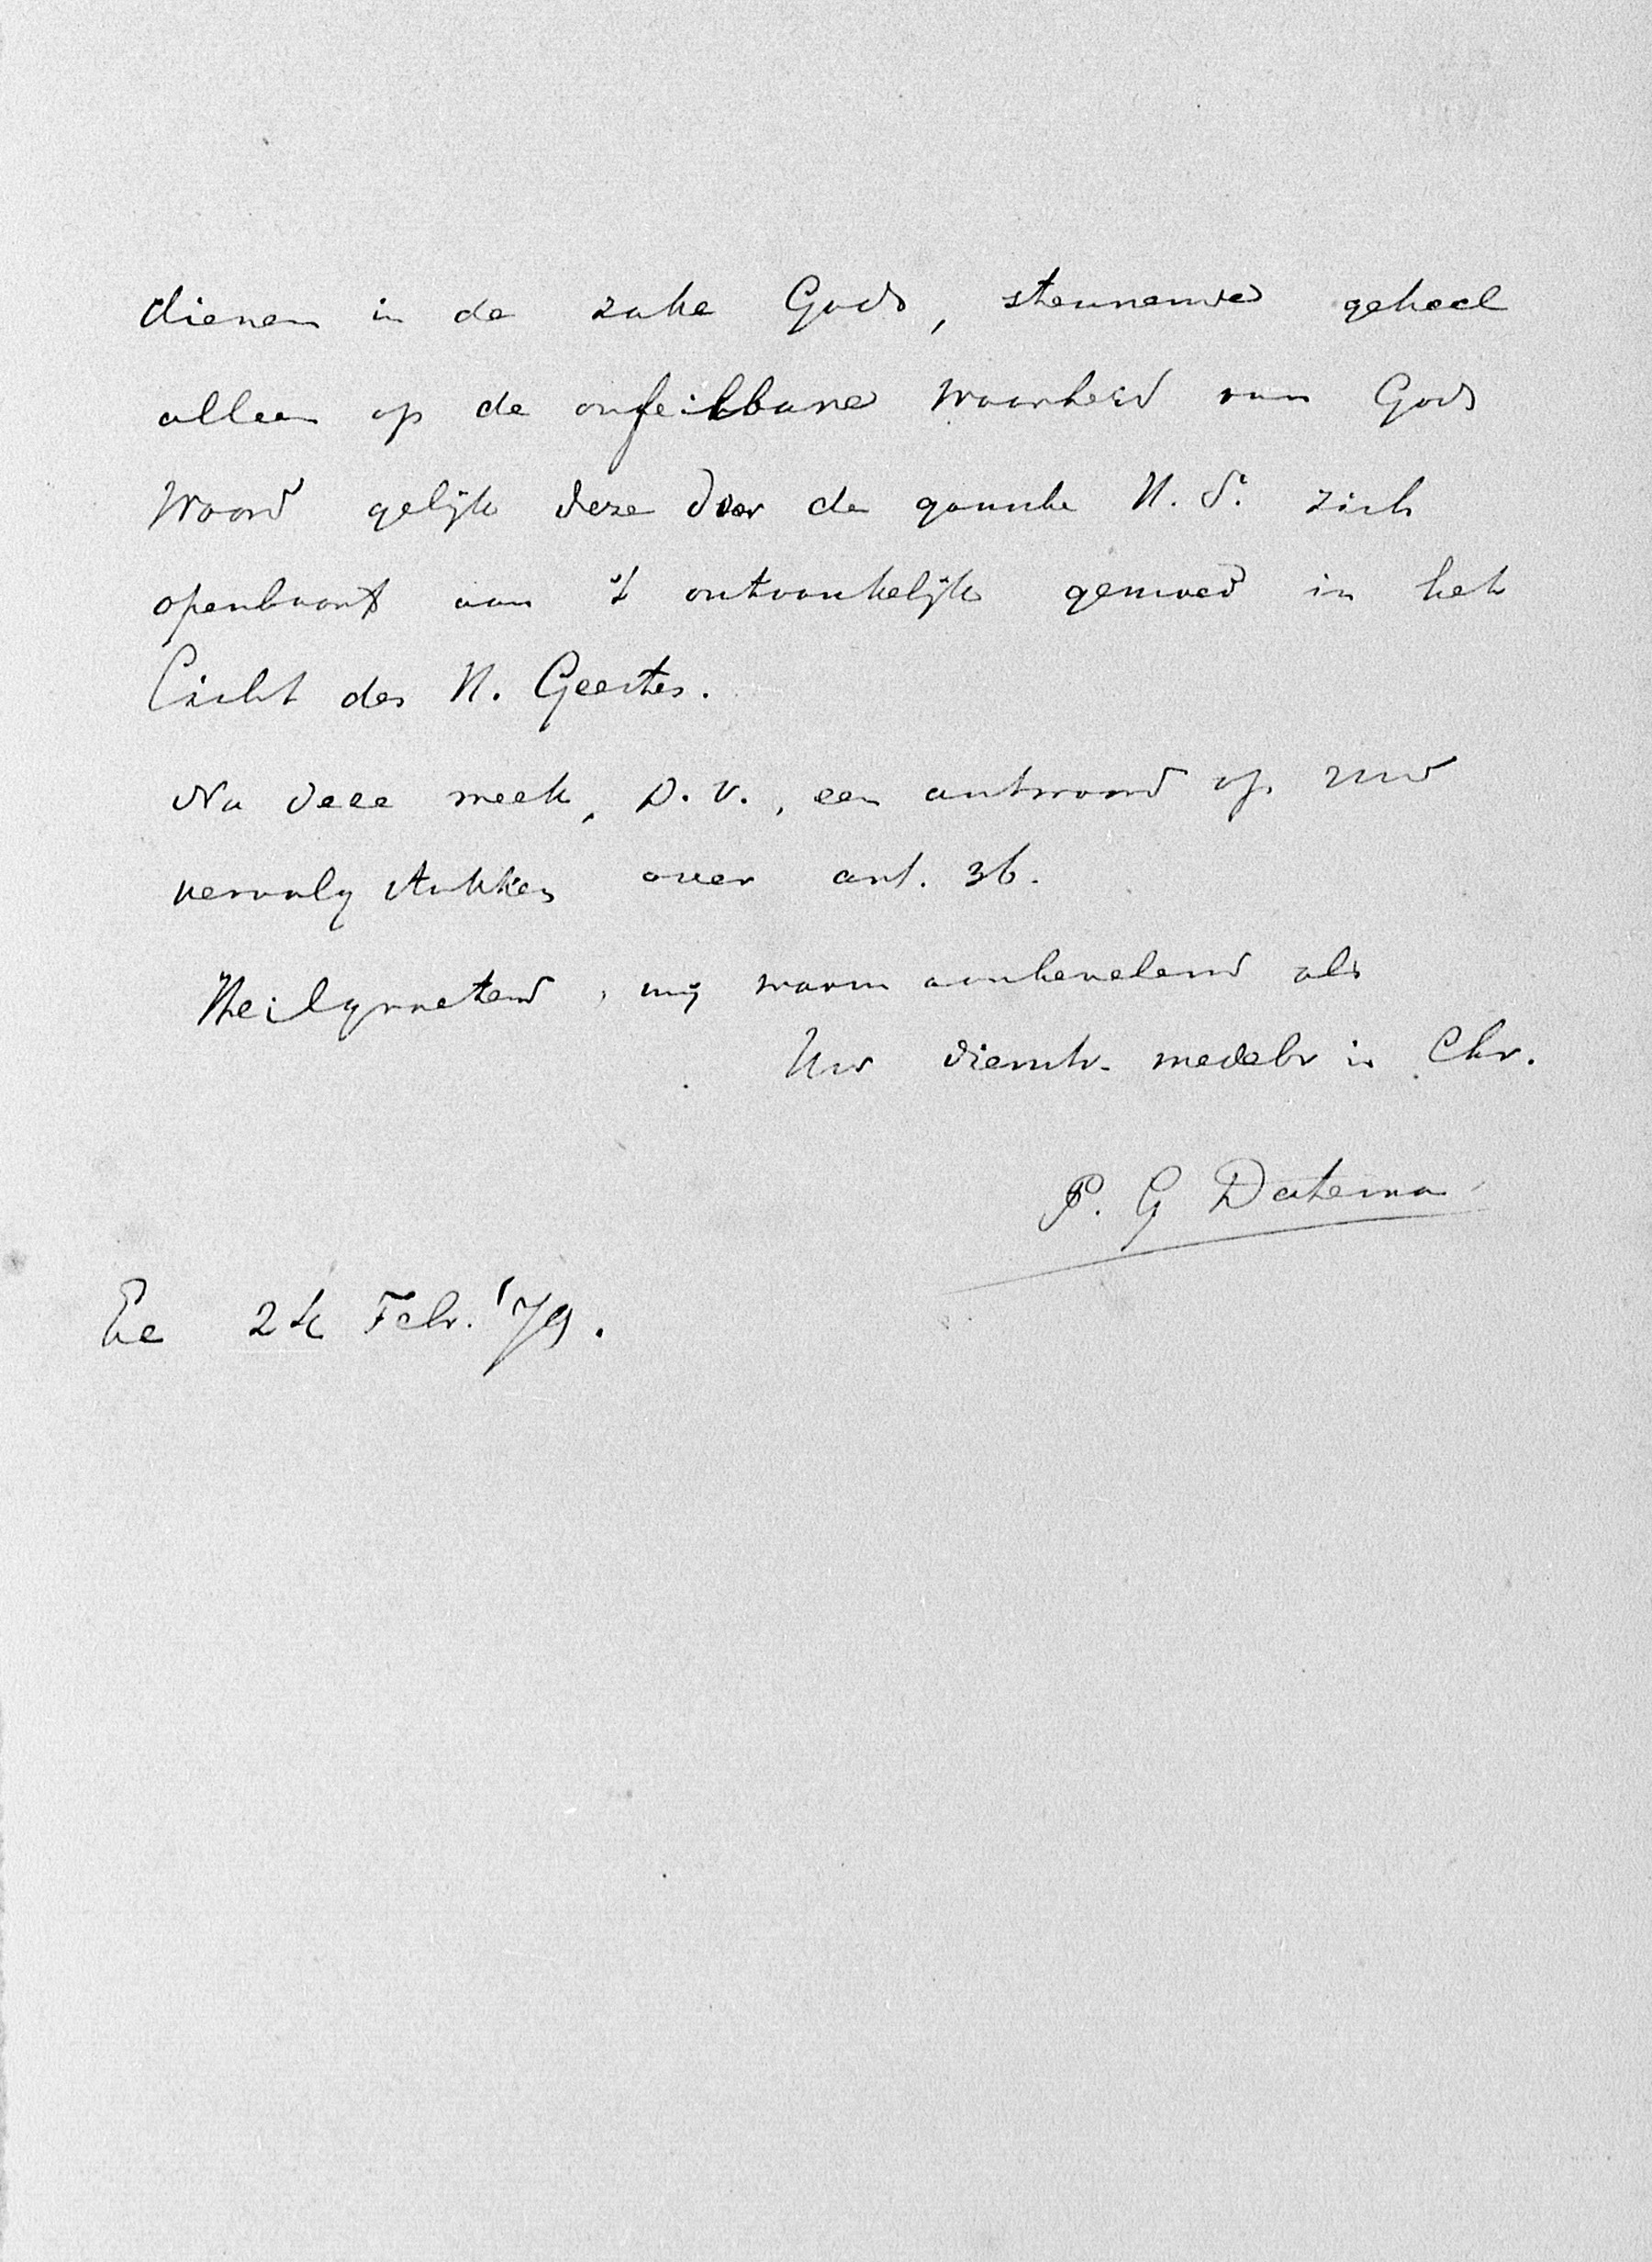 dienen in de zake Gods, steunende geheel
alleen op de onfeilbare waarheid van Gods
Woord gelijk deze door de gansche H. S. zich
openbaart aan 't ontvankelijk gemoed in het
licht des H. Geestes.
Na deze week, D. V., een antwoord op Uw
vervolg stukken over art. 36.
Heilgroetend, mij warm aanbevelend als
Uw dienstv. medebr in Chr.
P. G Datema
Ee 24 Febr. '79.